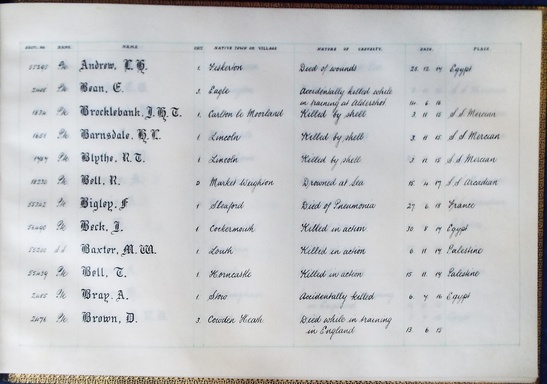 REGT. NO. RANK. NAME UNIT. NATIVE TOWN OR VILLAGE NATURE OF CASUALTY. DATE. PLACE
Pte Andrew, L.H. 1 Fiskerton Died of wounds 28 12 17 Egypt
Pte Bean, E. 3 Eagle Accidentally killed while
in training at Aldershot 10 6 16
Pte Brocklebank, J.H.T. 1 Carlton le Moorland Killed by shell 3 11 15 S.S. Mercian
Pte Barnsdale, H.L. 1 Lincoln Killed by shell 3 11 15 S.S. Mercian
Pte Blythe, R.T. 1 Lincoln Killed by shell 3 11 15 S.S. Mercian
Pte Bell, R. D Market Weighton Drowned at Sea 15 4 17 S.S. Arcadian
Pte Bigley, F 1 Sleaford Died of Pneumonia 27 6 18 France
Pte Beck, J. 1 Cockermouth Killed in action 30 8 17 Egypt
Baxter, M.W. 1 Louth Killed in action 6 11 17 Palestine
Pte Bell, T. 1 Horncastle Killed in action 15 11 17 Palestine
Pte Bray, A. 1 Stow Accidentally killed 6 7 16 Egypt
Pte Brown, D. 3 Cowden Heath Died while in training
in England 13 6 15